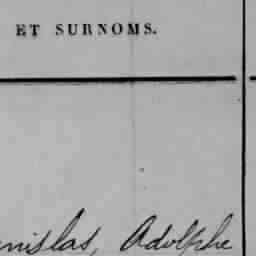 ET SURNOMS.
nislas, Adolphe